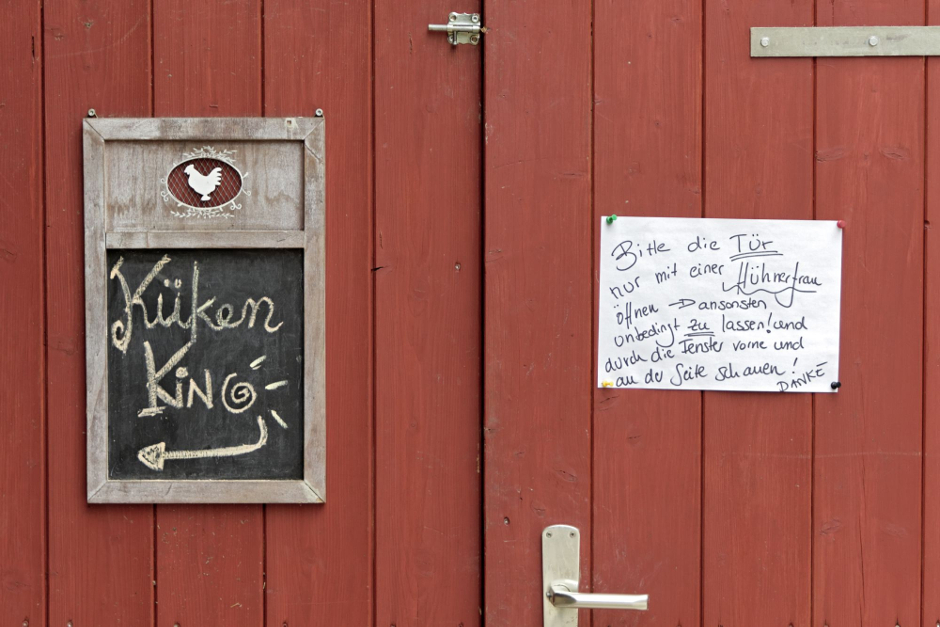 Küken
King
Bitte die Tür
nur mit einer Hühnerfrau
öffnen → ansonsten
unbedingt zu lassen! und
durch die Fenster vorne und
an der Seite schauen!
DANKE